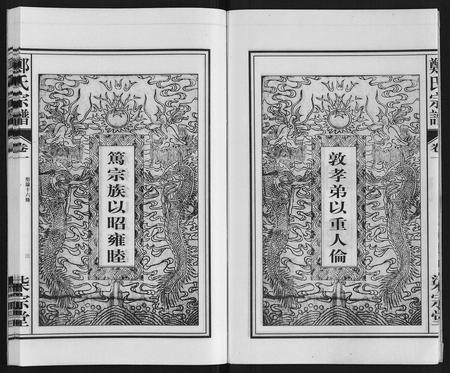 鄭氏宗譜
卷一
敦孝弟以重人倫
篤宗族以昭雍睦
鄭氏宗譜
卷一
聖諭十六條
三